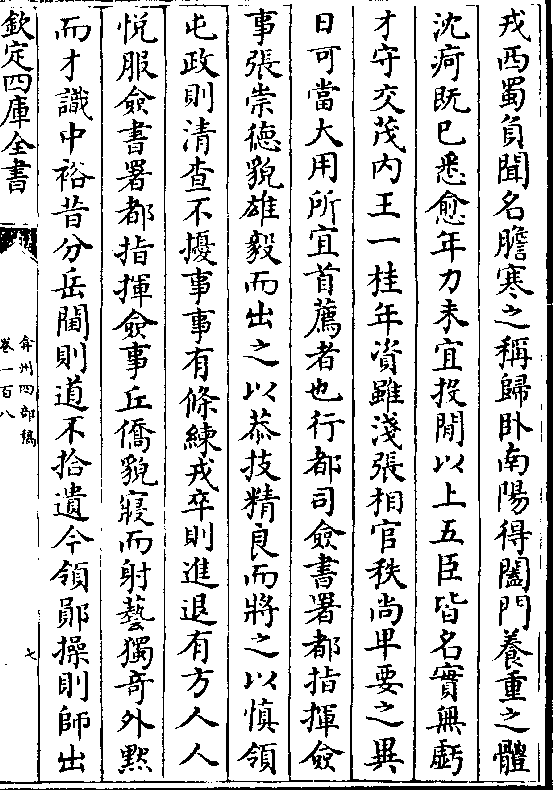 戎西蜀負聞名膽寒之稱歸卧南陽得闔門養重之體
沈疴既已悉愈年力未宜投閒以上五臣皆名實無虧
才守交茂内王一桂年資雖淺張相官秩尚卑要之異
日可當大用所宜首薦者也行都司僉書署都指揮僉
事張崇德貌雄毅而出之以恭技精良而將之以慎領
屯政則清查不擾事事有條練戎卒則進退有方人人
悦服僉書署都指揮僉事丘僑貌寢而射藝獨奇外黙
而才識中裕昔分岳閫則道不拾遺今領鄖操則師出
欽定四庫全書
弇州四部稿
卷一百八
七